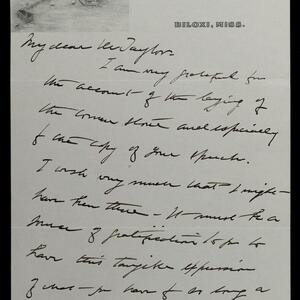 BILOXI, MISS.
My dear Mr Taylor.
I am very grateful for
the account of the laying of
the corner stone and especially
for the copy of your speech.
I wish very much that I might
have been there - It must be a
source of gratification to you to
have this tangible expression
of what you have for so long a